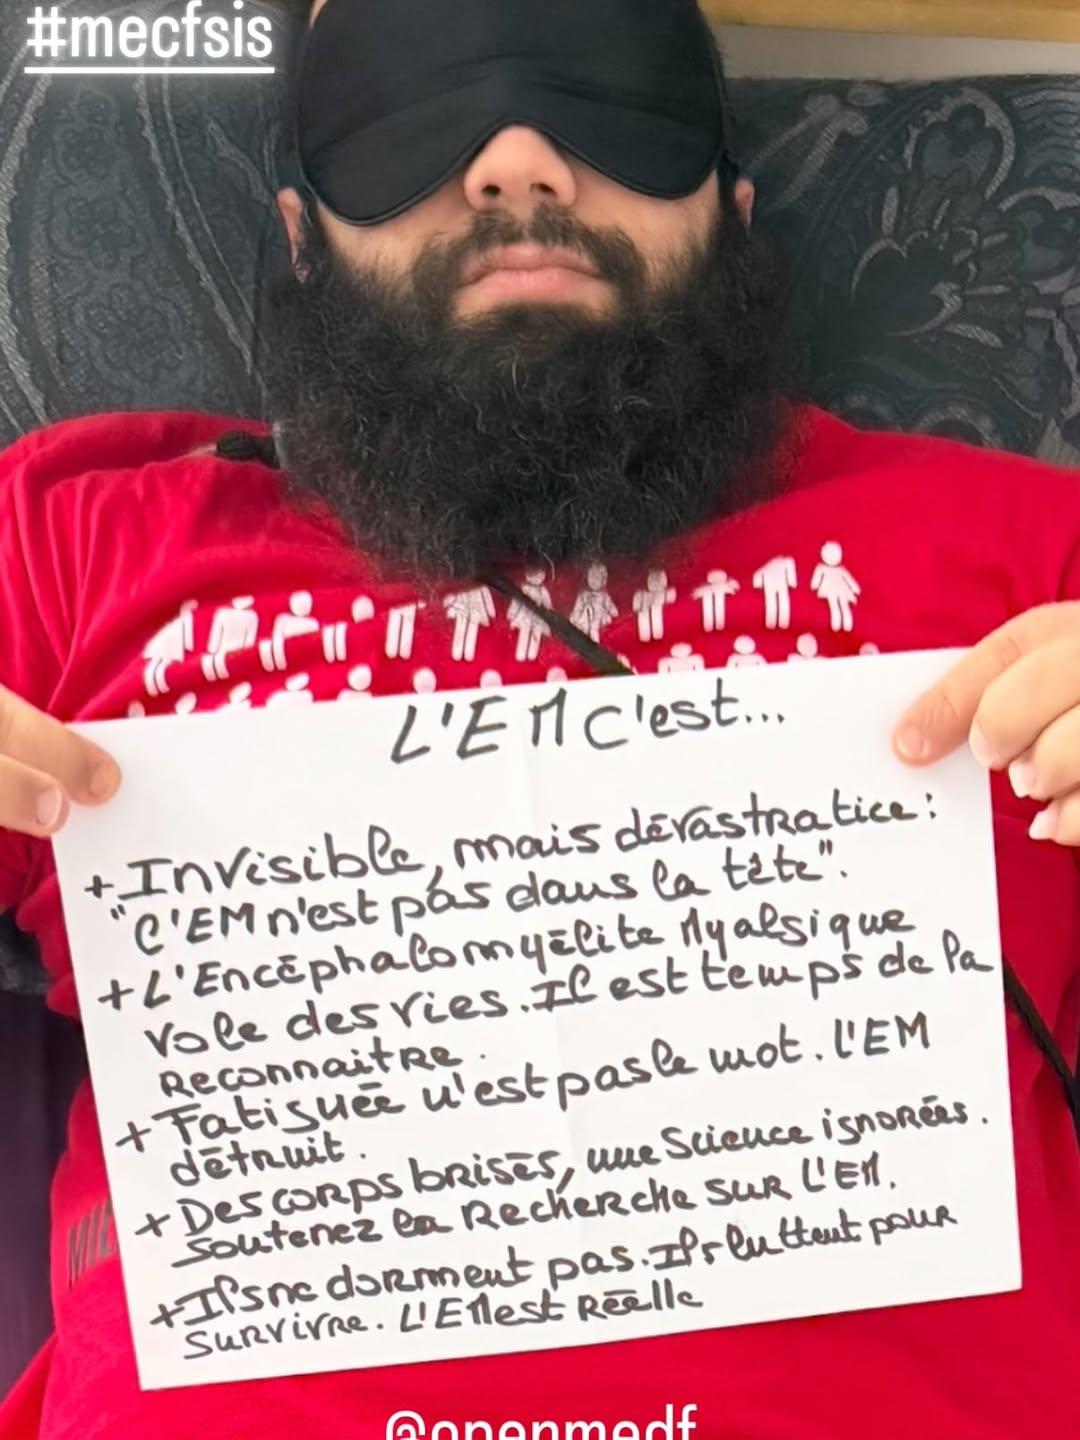 #mecfsis
L'EM c'est...
+ Invisible, mais dévastratice :
"C'EM n'est pas dans la tête".
+ L'Encéphalomyélite Myalgique
vole des vies. Il est temps de la
Reconnaitre.
+ Fatiguée n'est pas le mot. L'EM
détruit.
+ Des corps brisés, une Science ignorées.
soutenez la Recherche sur l'EM.
+ Ils ne dorment pas. Ils luttent pour
survivre. L'EM est Réelle
@openmedf